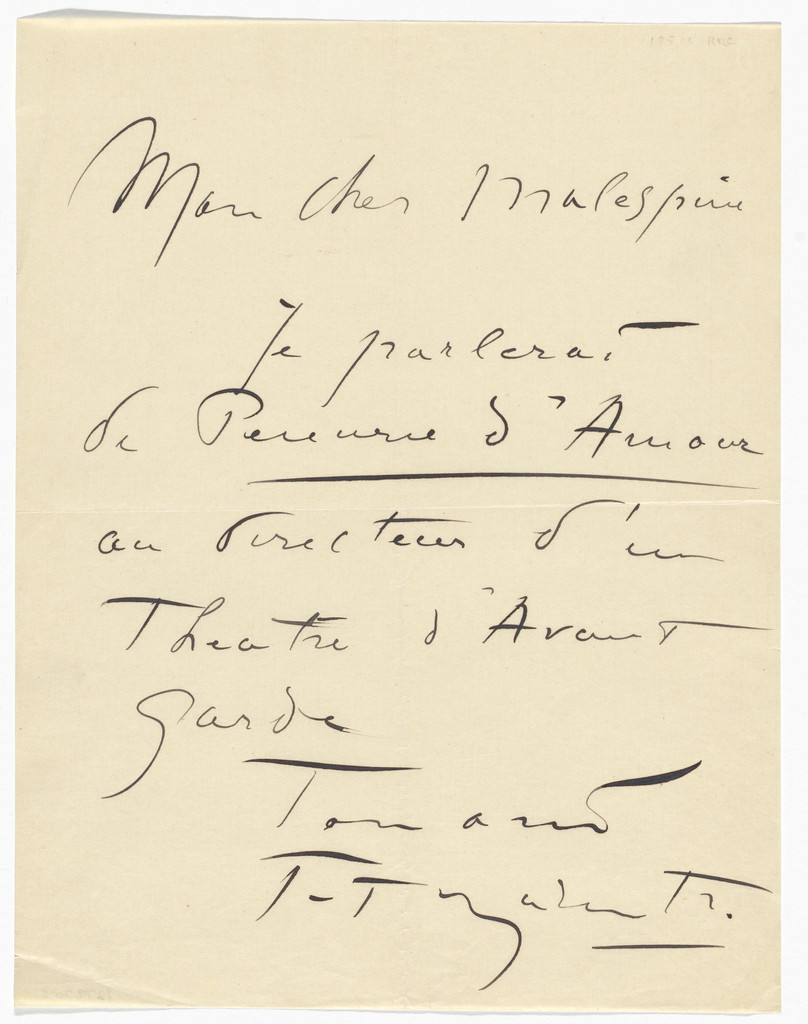 Mon cher Malespine
Je parlerai
de Penurie d'Amour
au directeur d'un
Theatre d'Avant
garde
Ton ami
F-T Marinetti.